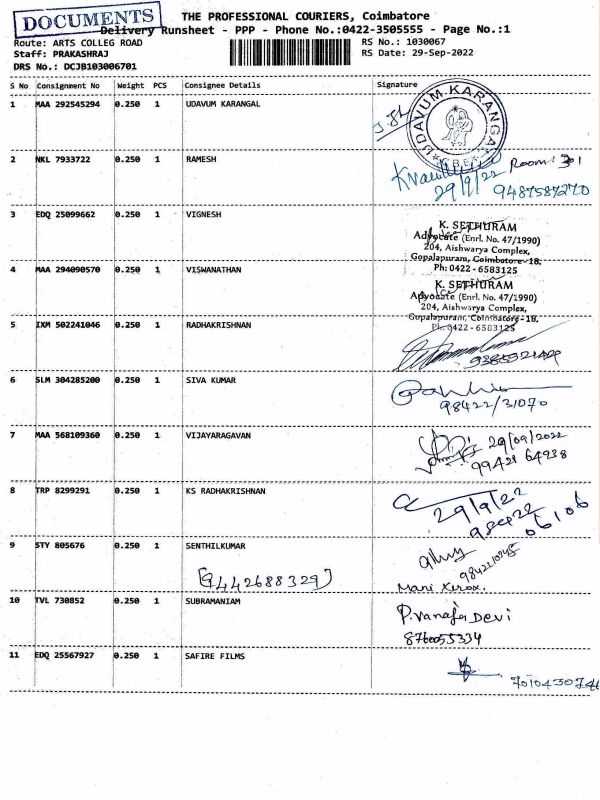 DOCUMENTS
THE PROFESSIONAL COURIERS, Coimbatore
Delivery Runsheet - PPP - Phone No.:0422-3505555 - Page No.:1
Route: ARTS COLLEG ROAD
RS No.: 1030067
Staff: PRAKASHRAJ
RS Date: 29-Sep-2022
DRS No.: DCJB103006701
S No Consignment No Weight PCS Consignee Details Signature
1 MAA 292545294 0.250 1 UDAVUM KARANGAL
UDAVUM KARANGAL
CBE
2 NKL 7933722 0.250 1 RAMESH
Room: 301
29/9/22 9487587270
3 EDQ 25099662 0.250 1 VIGNESH
K. SETHURAM
Advocate (Enrl. No. 47/1990)
204, Aishwarya Complex,
Gopalapuram, Coimbatore-18.
Ph: 0422 - 6583125
4 MAA 294090570 0.250 1 VISWANATHAN
K. SETHURAM
Advocate (Enrl. No. 47/1990)
204, Aishwarya Complex,
Gopalapuram, Coimbatore-18.
Ph: 0422 - 6583125
5 IXM 502241046 0.250 1 RADHAKRISHNAN
6 SLM 304285200 0.250 1 SIVA KUMAR
98422/31070
7 MAA 568109360 0.250 1 VIJAYARAGAVAN
29/09/2022
99421 64938
8 TRP 8299291 0.250 1 KS RADHAKRISHNAN
29/9/22
98422
06106
9 STY 805676 0.250 1 SENTHILKUMAR
(9442688329)
Mani Xerox.
10 TVL 730852 0.250 1 SUBRAMANIAM
P. Vanaja Devi
8760055334
11 EDQ 25567927 0.250 1 SAFIRE FILMS